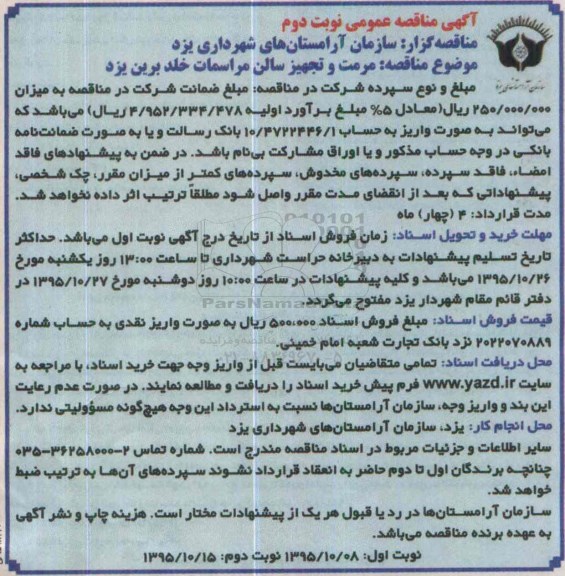 آگهی مناقصه عمومی نوبت دوم
مناقصه‌گزار: سازمان آرامستان‌های شهرداری یزد
موضوع مناقصه: مرمت و تجهیز سالن مراسمات خلد برین یزد
مبلغ و نوع سپرده شرکت در مناقصه: مبلغ ضمانت شرکت در مناقصه به میزان
۲۵۰/۰۰۰/۰۰۰ ریال(معادل ۵% مبلغ برآورد اولیه ۴/۹۵۲/۳۳۴/۴۷۸ ریال) می‌باشد که
می‌تواند به صورت واریز به حساب ۱۰/۴۷۲۲۴۴۶/۱ بانک رسالت و یا به صورت ضمانت‌نامه
بانکی در وجه حساب مذکور و یا اوراق مشارکت بی‌نام باشد. در ضمن به پیشنهادهای فاقد
امضاء، فاقد سپرده، سپرده‌های مخدوش، سپرده‌های کمتر از میزان مقرر، چک شخصی،
پیشنهاداتی که بعد از انقضای مدت مقرر واصل شود مطلقاً ترتیب اثر داده نخواهد شد.
مدت قرارداد: ۴ (چهار) ماه
مهلت خرید و تحویل اسناد: زمان فروش اسناد از تاریخ درج آگهی نوبت اول می‌باشد. حداکثر
تاریخ تسلیم پیشنهادات به دبیرخانه حراست شهرداری تا ساعت ۱۳:۰۰ روز یکشنبه مورخ
۱۳۹۵/۱۰/۲۶ می‌باشد و کلیه پیشنهادات در ساعت ۱۰:۰۰ روز دوشنبه مورخ ۱۳۹۵/۱۰/۲۷ در
دفتر قائم مقام شهردار یزد مفتوح می‌گردد.
قیمت فروش اسناد: مبلغ فروش اسناد ۵۰۰.۰۰۰ ریال به صورت واریز نقدی به حساب شماره
۲۰۲۲۰۷۰۸۸۹ نزد بانک تجارت شعبه امام خمینی.
محل دریافت اسناد: تمامی متقاضیان می‌بایست قبل از واریز وجه جهت خرید اسناد، با مراجعه به
سایت www.yazd.ir فرم پیش خرید اسناد را دریافت و مطالعه نمایند. در صورت عدم رعایت
این بند و واریز وجه، سازمان آرامستان‌ها نسبت به استرداد این وجه هیچ‌گونه مسؤولیتی ندارد.
محل انجام کار: یزد، سازمان آرامستان‌های شهرداری یزد
سایر اطلاعات و جزئیات مربوط در اسناد مناقصه مندرج است. شماره تماس ۲-۰۳۵-۳۶۲۵۸۰۰۰
چنانچه برندگان اول تا دوم حاضر به انعقاد قرارداد نشوند سپرده‌های آن‌ها به ترتیب ضبط
خواهد شد.
سازمان آرامستان‌ها در رد یا قبول هر یک از پیشنهادات مختار است. هزینه چاپ و نشر آگهی
به عهده برنده مناقصه می‌باشد.
نوبت اول: ۱۳۹۵/۱۰/۰۸ نوبت دوم: ۱۳۹۵/۱۰/۱۵